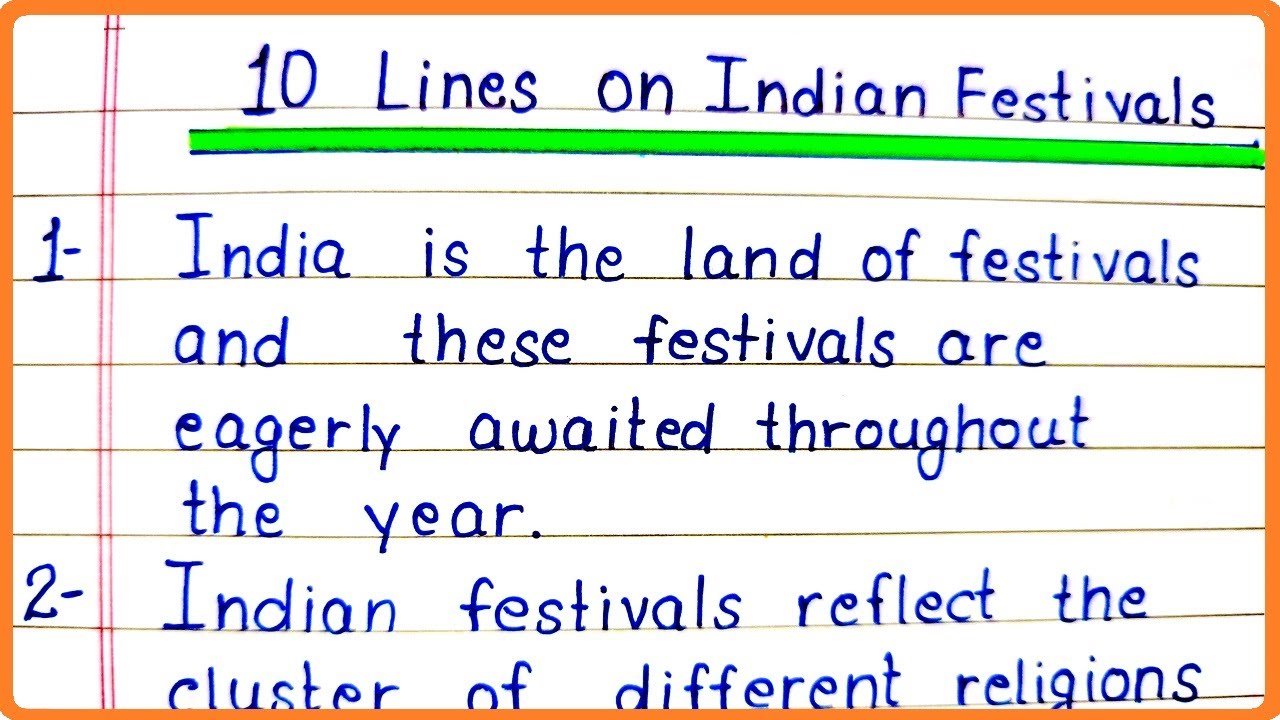 10 Lines on Indian Festivals
1- India is the land of festivals
and these festivals are
eagerly awaited throughout
the year.
2- Indian festivals reflect the
cluster of different religions